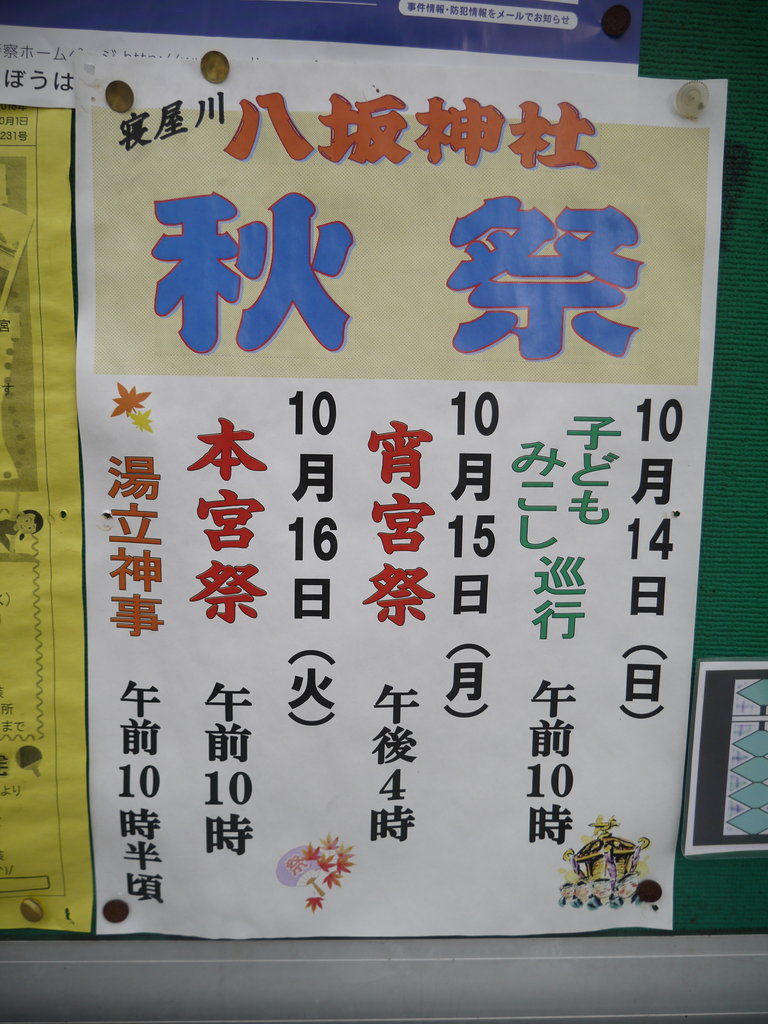 事件情報・防犯情報をメールでお知らせ
察ホームページ
ぼうは
0月1日
231号
寝屋川
八坂神社
秋祭
10月14日(日)
子ども
みこし巡行
午前10時
10月15日(月)
宵宮祭
午後4時
10月16日(火)
本宮祭
午前10時
湯立神事
午前10時半頃
祭
所
まで
より